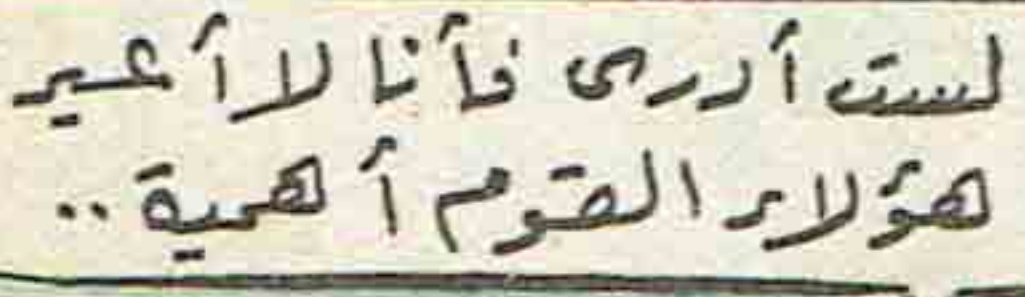 لست أدرى فأنا لا أعير
هؤلاء القوم أهمية ..